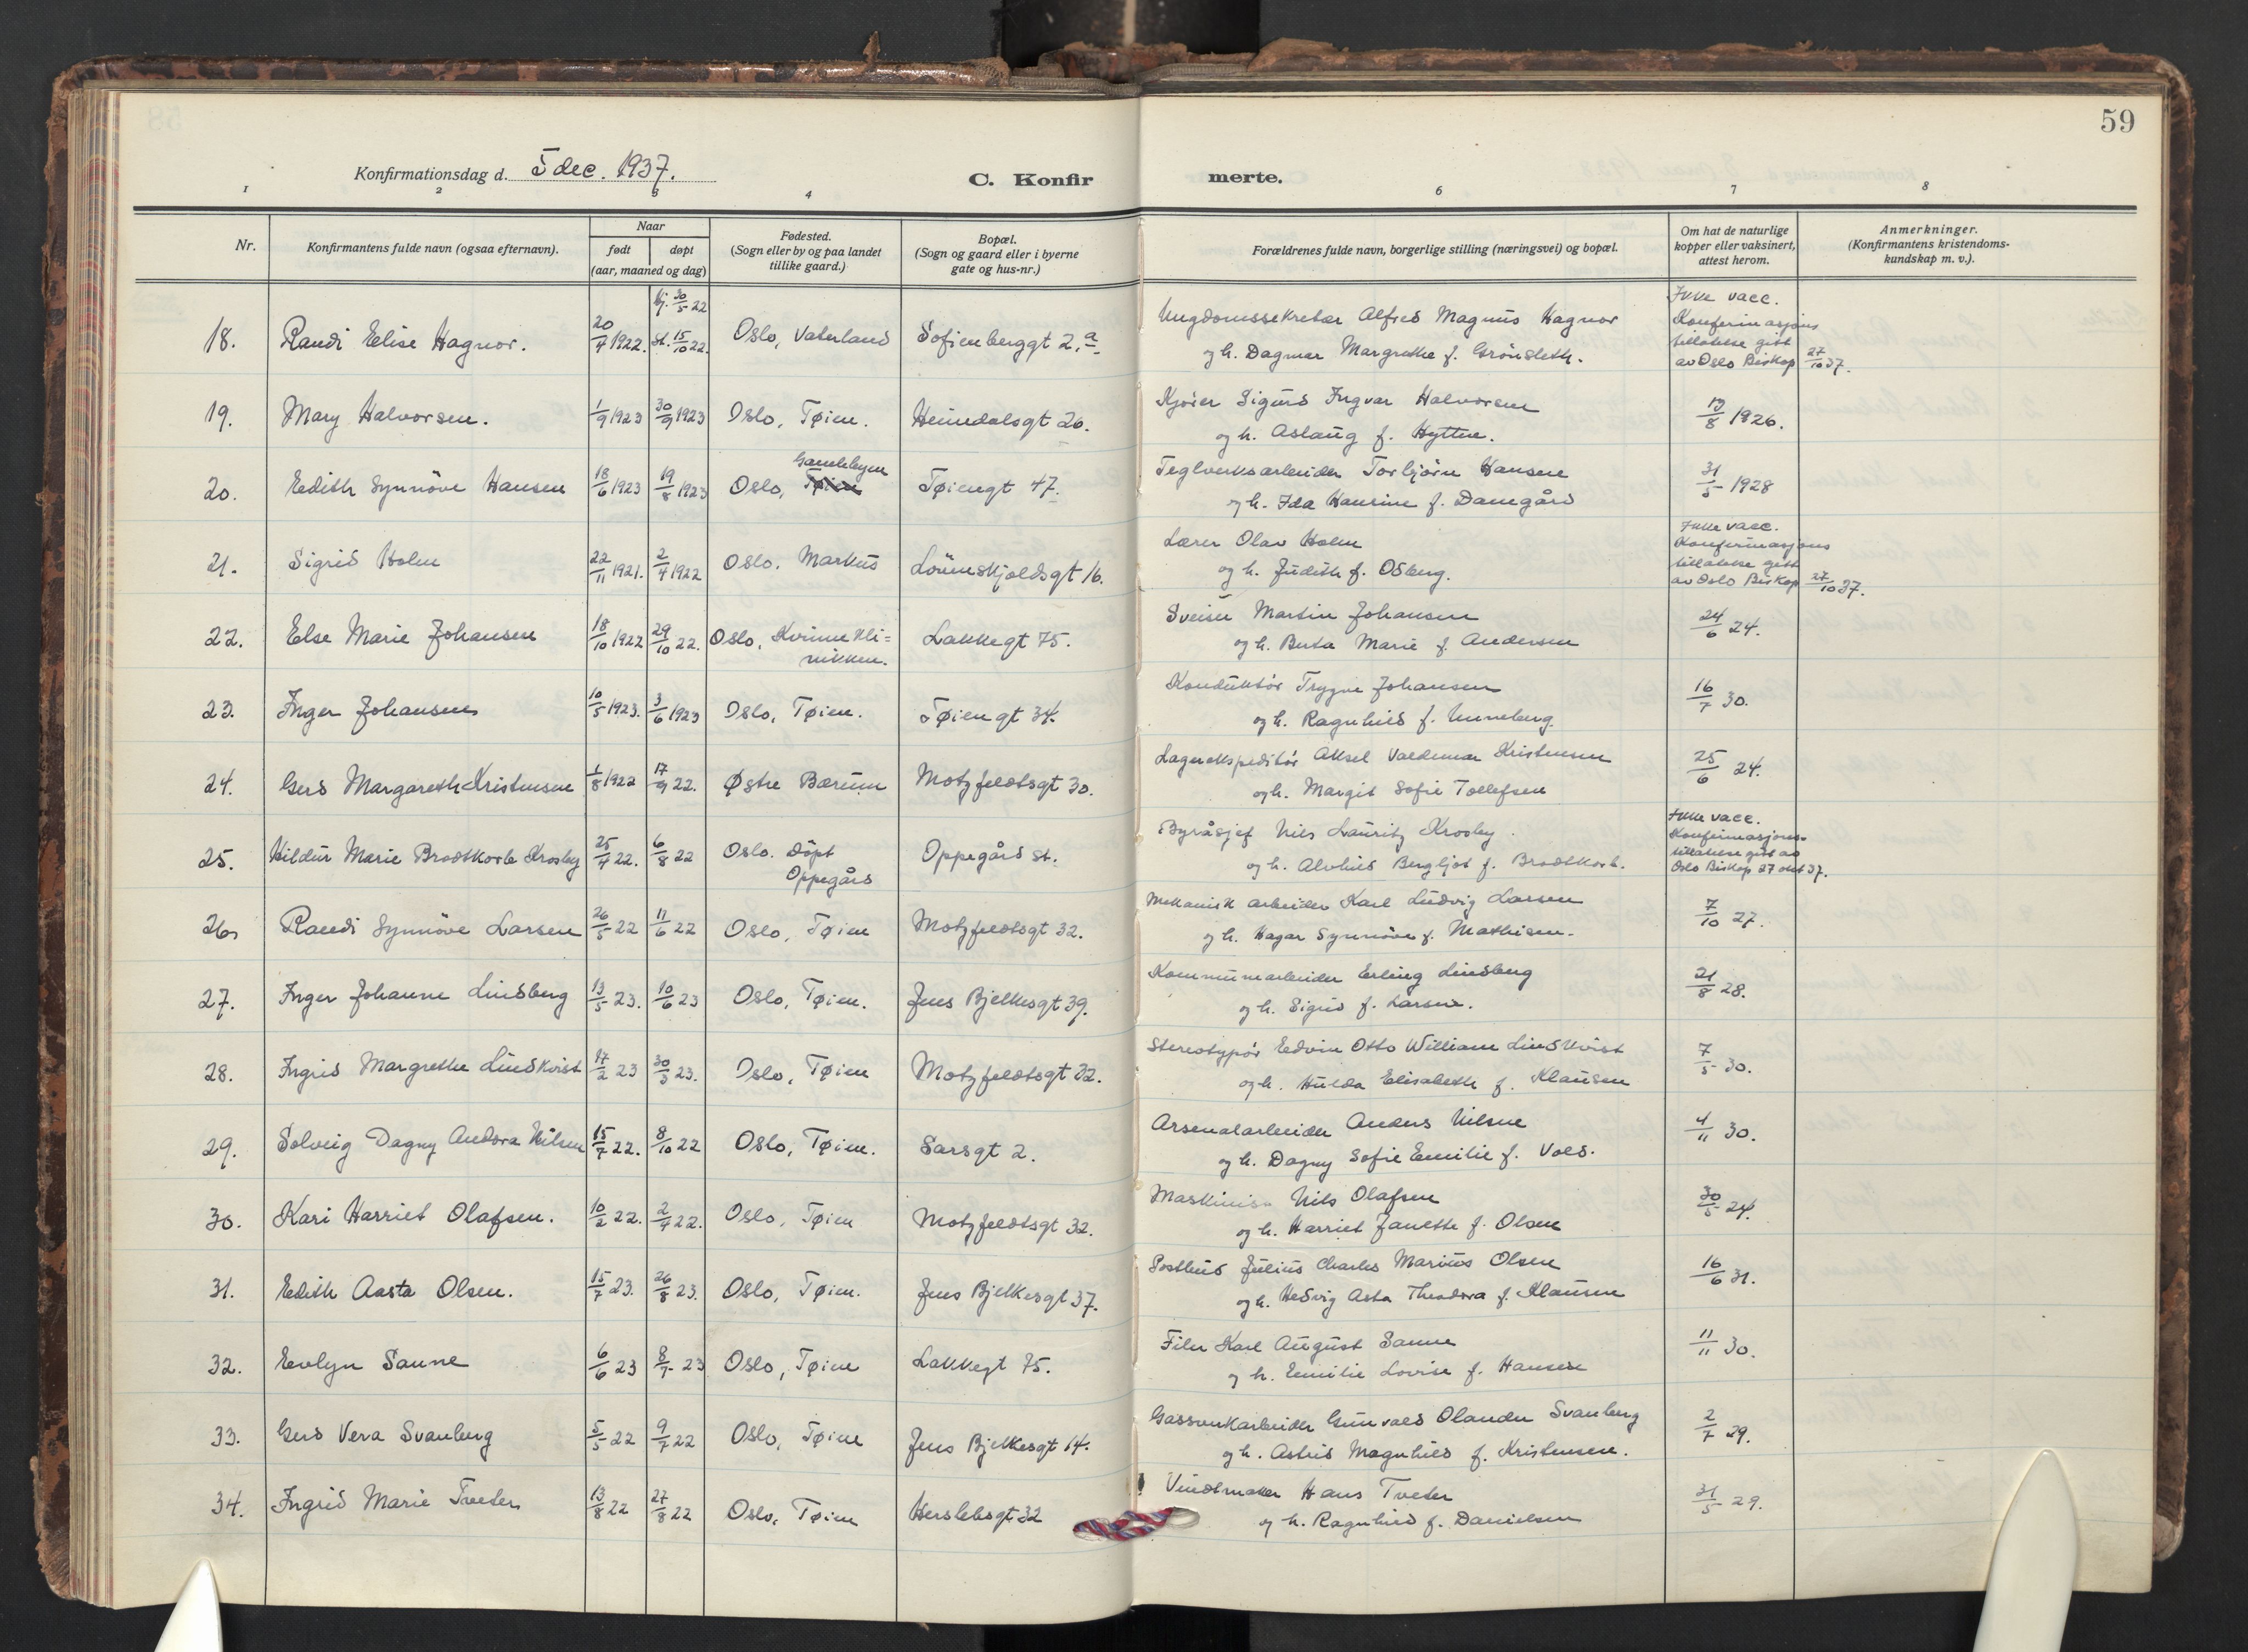 59
Konfirmationsdag d. 5 dec. 1937.
C. Konfirmerte.
1 2 3 4 6 7 8
Nr.
Konfirmantens fulde navn (ogsaa efternavn).
Naar
født døpt
(aar, maaned og dag)
Fødested.
(Sogn eller by og paa landet
tillike gaard.)
Bopæl.
(Sogn og gaard eller i byerne
gate og hus-nr.)
Forældrenes fulde navn, borgerlige stilling (næringsvei) og bopæl.
Om hat de naturlige
kopper eller vaksinert,
attest herom.
Anmerkninger.
(Konfirmantens kristendoms-
kundskap m. v.).
18. Randi Elise Hagnor. 20/4 1922. hj. 30/5 22 st. 15/10 22. Oslo, Vaterland Sofienberggt 2.a
Ungdomssekretær Alfred Magnus Hagnor
og h. Dagmar Margrethe f. Grönsleth.
Ikke vacc.
Konfirmasjons
tillatelse gitt
av Oslo Biskop 27/10 37.
19. Mary Halvorsen. 1/9 1923 30/9 1923 Oslo, Tøien. Heimdalsgt 26.
Kjører Sigurd Ingvar Halvorsen
og h. Aslaug f. Hytten.
13/8 1926.
20. Edith Synnöve Hansen 18/6 1923 19/8 1923 Oslo, Tøien Gamlebyen Tøiengt 47.
Teglverksarbeider Torbjörn Hansen
og h. Ida Hansine f. Damgård
31/5 1928
21. Sigrid Holm 22/11 1921. 2/4 1922 Oslo. Markus Lörenskjoldsgt 16.
Lærer Olav Holm
og h. Judith f. Osberg.
Ikke vacc.
Konfirmasjons
tillatelse gitt
av Oslo Biskop 27/10 37.
22. Else Marie Johansen 18/10 1922 29/10 22. Oslo, Kvinnekli=
nikken. Lakkegt 75.
Sveiser Martin Johansen
og h. Berta Marie f. Andersen
24/6 24.
23. Inger Johansen 10/5 1923. 3/6 1923 Oslo, Tøien. Tøiengt 34.
Konduktör Trygve Johansen
og h. Ragnhild f. Unneberg
16/7 30.
24. Gerd Margareth Kristensen 1/8 1922 17/9 22. Østre Bærum Motzfeldtsgt 30.
Lagerekspeditör Aksel Valdemar Kristensen
og h. Margit Sofie Tollefsen
25/6 24.
25. Hildur Marie Brodtkorb Krosby 25/4 22. 6/8 22 Oslo. Döpt
Oppegård Oppegård st.
Byråsjef Nils Lauritz Krosby.
og h. Alvhild Bergljot f. Brodtkorb.
Ikke vacc.
Konfirmasjons-
tillatelse gitt av
Oslo Biskop 27 okt 37.
26. Randi Synnöve Larsen 26/5 22 11/6 22 Oslo, Tøien Motzfeldtsgt 32.
Mekanisk arbeider Karl Ludvig Larsen
og h. Hagar Synnöve f. Mathisen.
7/10 27.
27. Inger Johanne Lindberg 13/5 23. 10/6 23 Oslo, Tøien. Jens Bjelkesgt 39.
Kommunearbeider Erling Lindberg
og h. Sigrid f. Larsen.
21/8 28.
28. Ingrid Margrethe Lindkvist 17/2 23 30/3 23. Oslo, Tøien Motzfeldtsgt 32.
Stereotypör Edvin Otto William Lindkvist
og h. Hulda Elisabeth f. Klausen
7/5 30.
29. Solveig Dagny Andora Nilsen 15/7 22. 8/10 22 Oslo, Tøien. Sarsgt 2.
Arsenalarbeider Anders Nilsen
og h. Dagny Sofie Emilie f. Vold.
4/11 30.
30. Kari Harriet Olafsen. 10/2 22. 2/4 22. Oslo, Tøien Motzfeldtsgt 32.
Maskinist Nils Olafsen
og h. Harriet Janette f. Olsen
30/5 24.
31. Edith Aasta Olsen. 15/7 23. 26/8 23. Oslo, Tøien. Jens Bjelkesgt 37.
Postbud Julius Charles Marius Olsen
og h. Hedvig Asta Theodora f. Klausen
16/6 31.
32. Evelyn Sanne 6/6 23 8/7 23 Oslo, Tøien Lakkegt 75.
Filer Karl August Sanne
og h. Emilie Lovise f. Hansen
11/11 30.
33. Gerd Vera Svanberg 5/5 22 9/7 22 Oslo, Tøien Jens Bjelkesgt 14.
Gassverkarbeider Gunvald Olander Svanberg
og h. Astrid Magnhild f. Kristensen.
2/7 29.
34. Ingrid Marie Tveter 13/8 22 27/8 22 Oslo, Tøien Herslebsgt 32
Hans Tveter
og h. Ragnhild f. Danielsen
31/5 29.